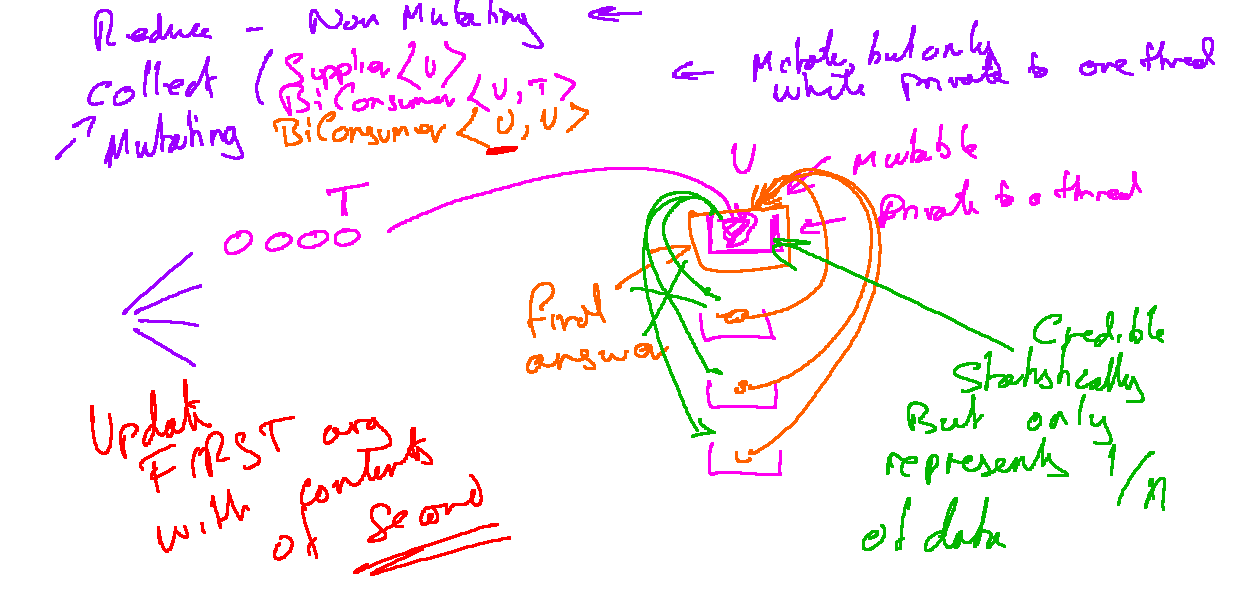 Reduce - Non Mutating ←
collect (Supplier<U>
BiConsumer<U,T>
BiConsumer<U,U>
Mutating
← Mutate, but only
while private to one thread
U
Mutable
private to a thread
T
final
answer
Credible
Statistically
But only
represents 1/n
of data
Update
FIRST arg
with contents
of Second